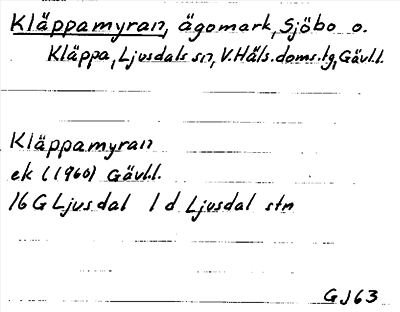 Kläppamyran, ägomark, Sjöbo o.
Kläppa, Ljusdals sn, V. Häls. doms. tg, Gävl.l.
Kläppamyran
ek (1960) Gävl.l.
16 G Ljusdal 1 d Ljusdal stn
GJ63